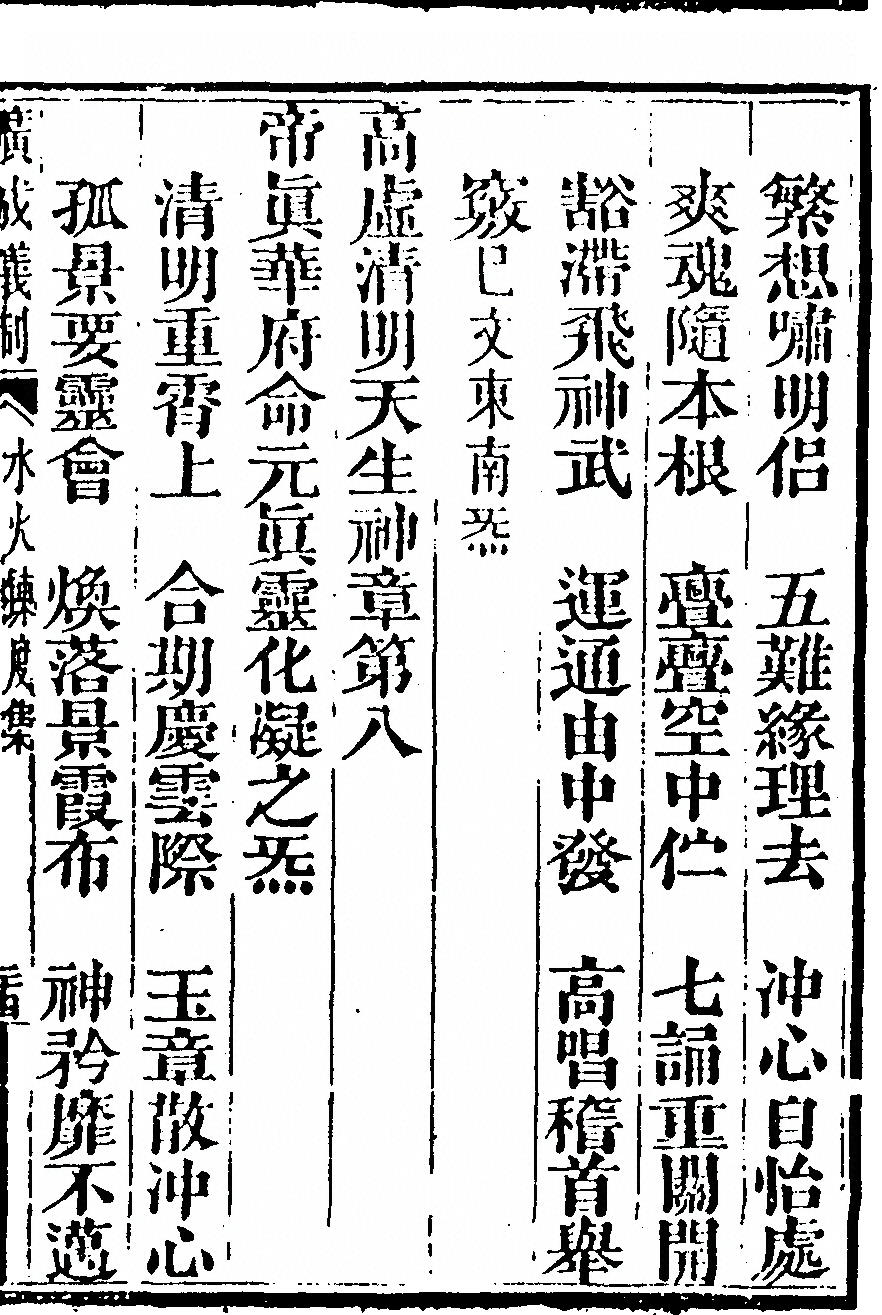 繁想嘯明侶　五難緣理去　沖心自怡處
爽魂隨本根　亹亹空中伫　七誦重關開
豁滯飛神武　運通由中發　高唱稽首舉
竅巳文東南炁
高虛清明天生神章第八
帝眞華府命元眞靈化凝之炁
清明重霄上　合期慶雲際　玉章散沖心
孤景要靈會　煥落景霞布　神矜靡不邁
廣成儀制　水火鍊度集